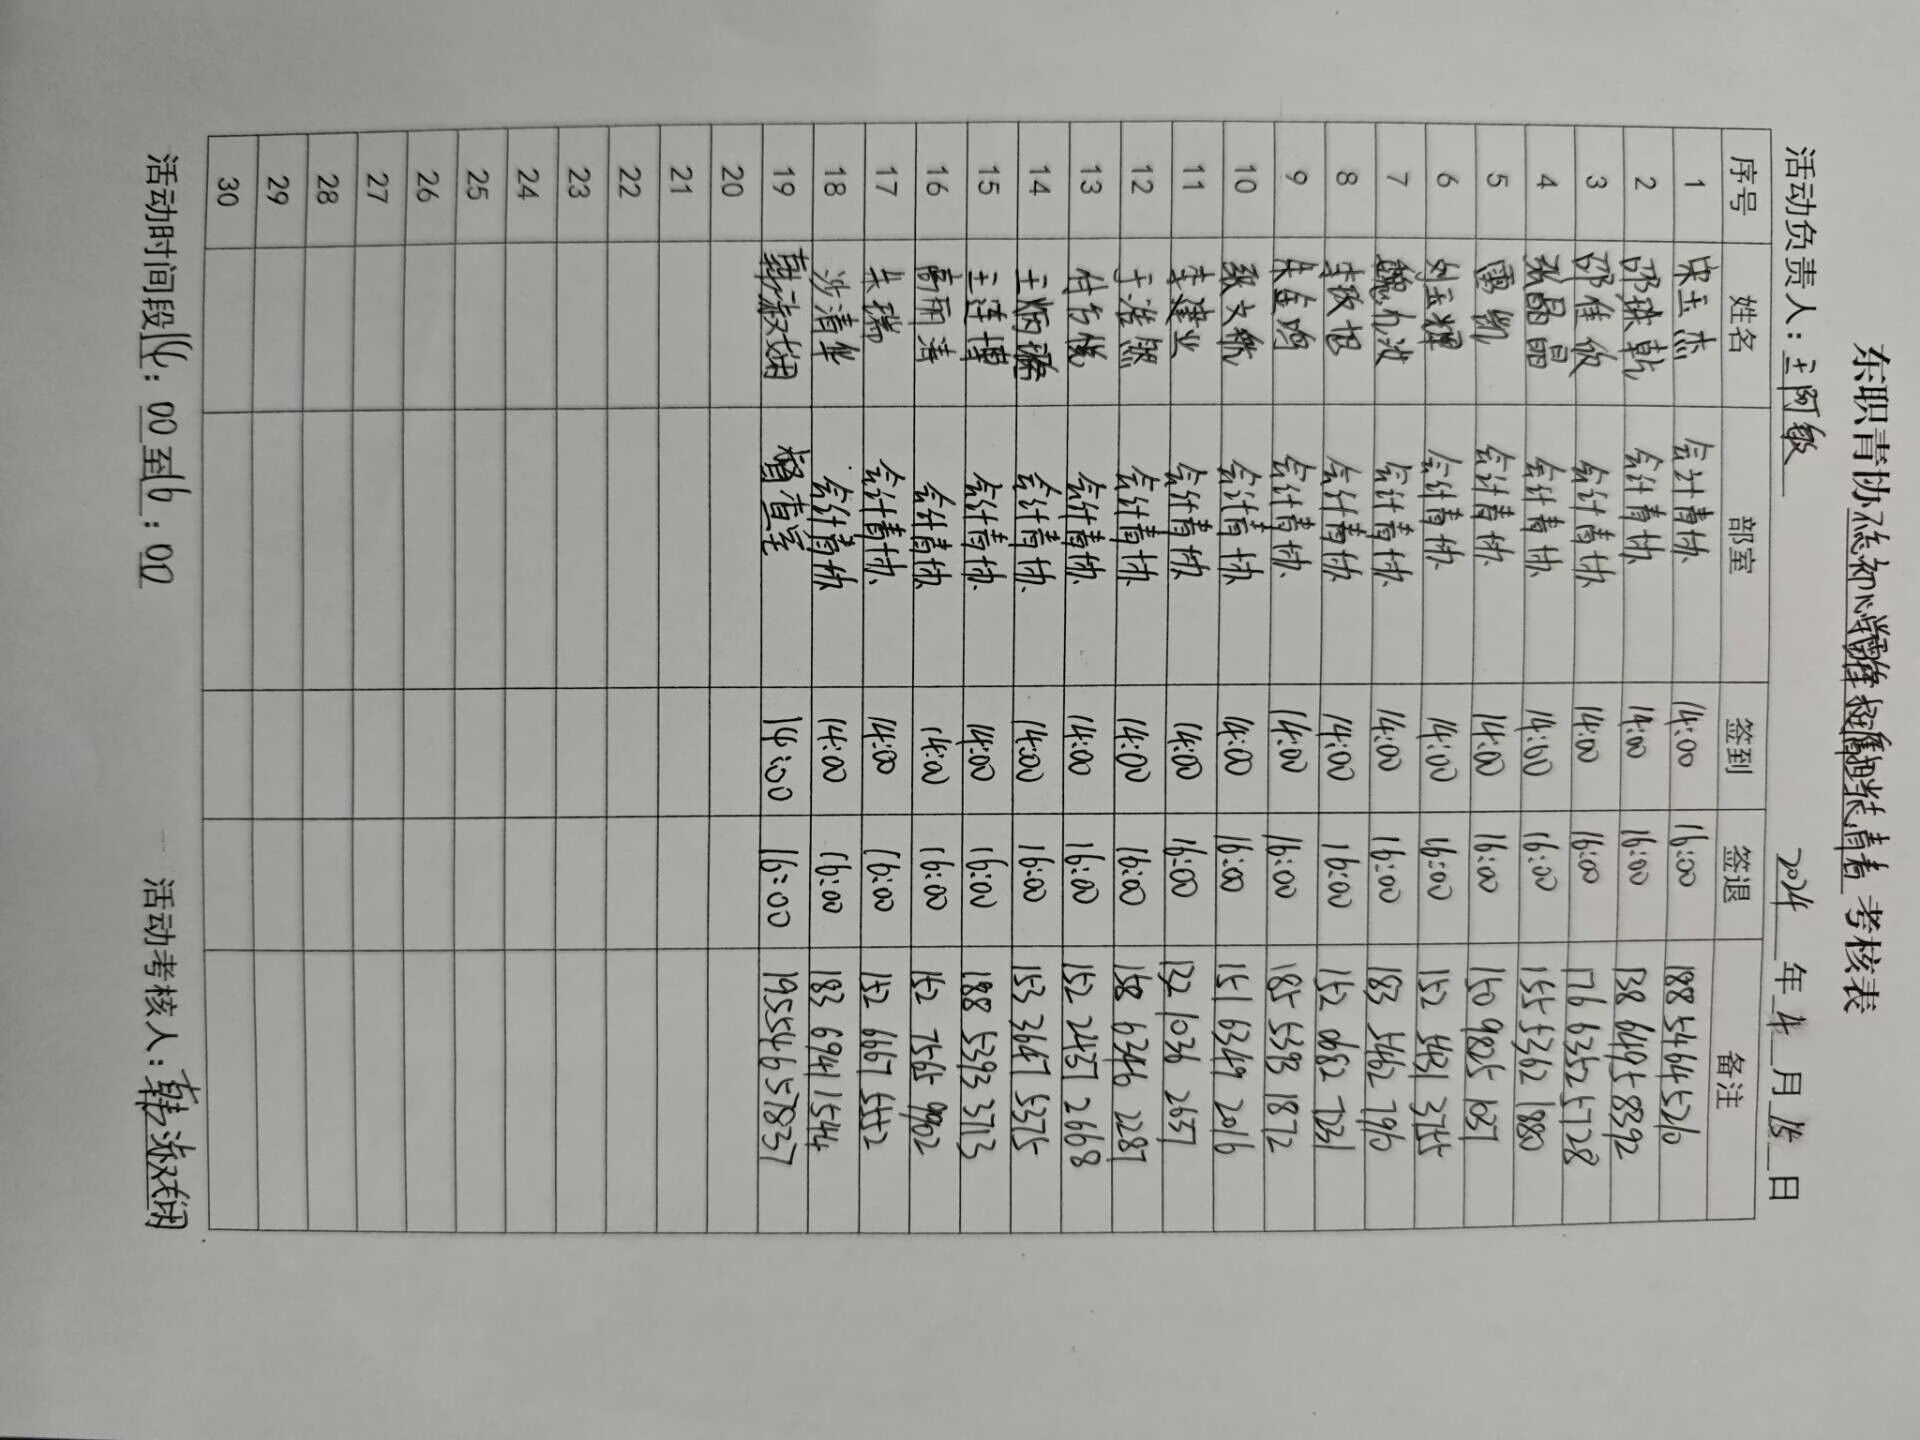 东职青协 考核表
活动负责人：王阿敏 2024年4月18日
序号 姓名 部室 签到 签退 备注
1 宋玉杰 会计青协 14:00 16:00 188 5464 5210
2 邵琪乾 会计青协 14:00 16:00 138 6495 8392
3 邵维欣 会计青协 14:00 16:00 176 6352 5728
4 张晶晶 会计青协 14:00 16:00 155 5362 1880
5 雷凯 会计青协 14:00 16:00 150 9825 1037
6 刘玉耀 会计青协 14:00 16:00 152 5431 3755
7 魏九汝 会计青协 14:00 16:00 183 5462 7960
8 李致旭 会计青协 14:00 16:00 152 0682 7231
9 朱金鸣 会计青协 14:00 16:00 185 5398 1872
10 张文航 会计青协 14:00 16:00 151 6349 2016
11 李建业 会计青协 14:00 16:00 132 1036 2637
12 于浩然 会计青协 14:00 16:00 158 6346 2287
13 付方悦 会计青协 14:00 16:00 152 2437 2668
14 王炳 会计青协 14:00 16:00 153 3647 5375
15 王连博 会计青协 14:00 16:00 188 5393 3713
16 高雨涛 会计青协 14:00 16:00 152 7565 9902
17 吴瑞 会计青协 14:00 16:00 152 6667 5552
18 沙清华 会计青协 14:00 16:00 183 6941 1544
19 韩淑翊 督查室 14:00 16:00 19554657837
20
21
22
23
24
25
26
27
28
29
30
活动时间段14：00至16：00 活动考核人：韩淑翊